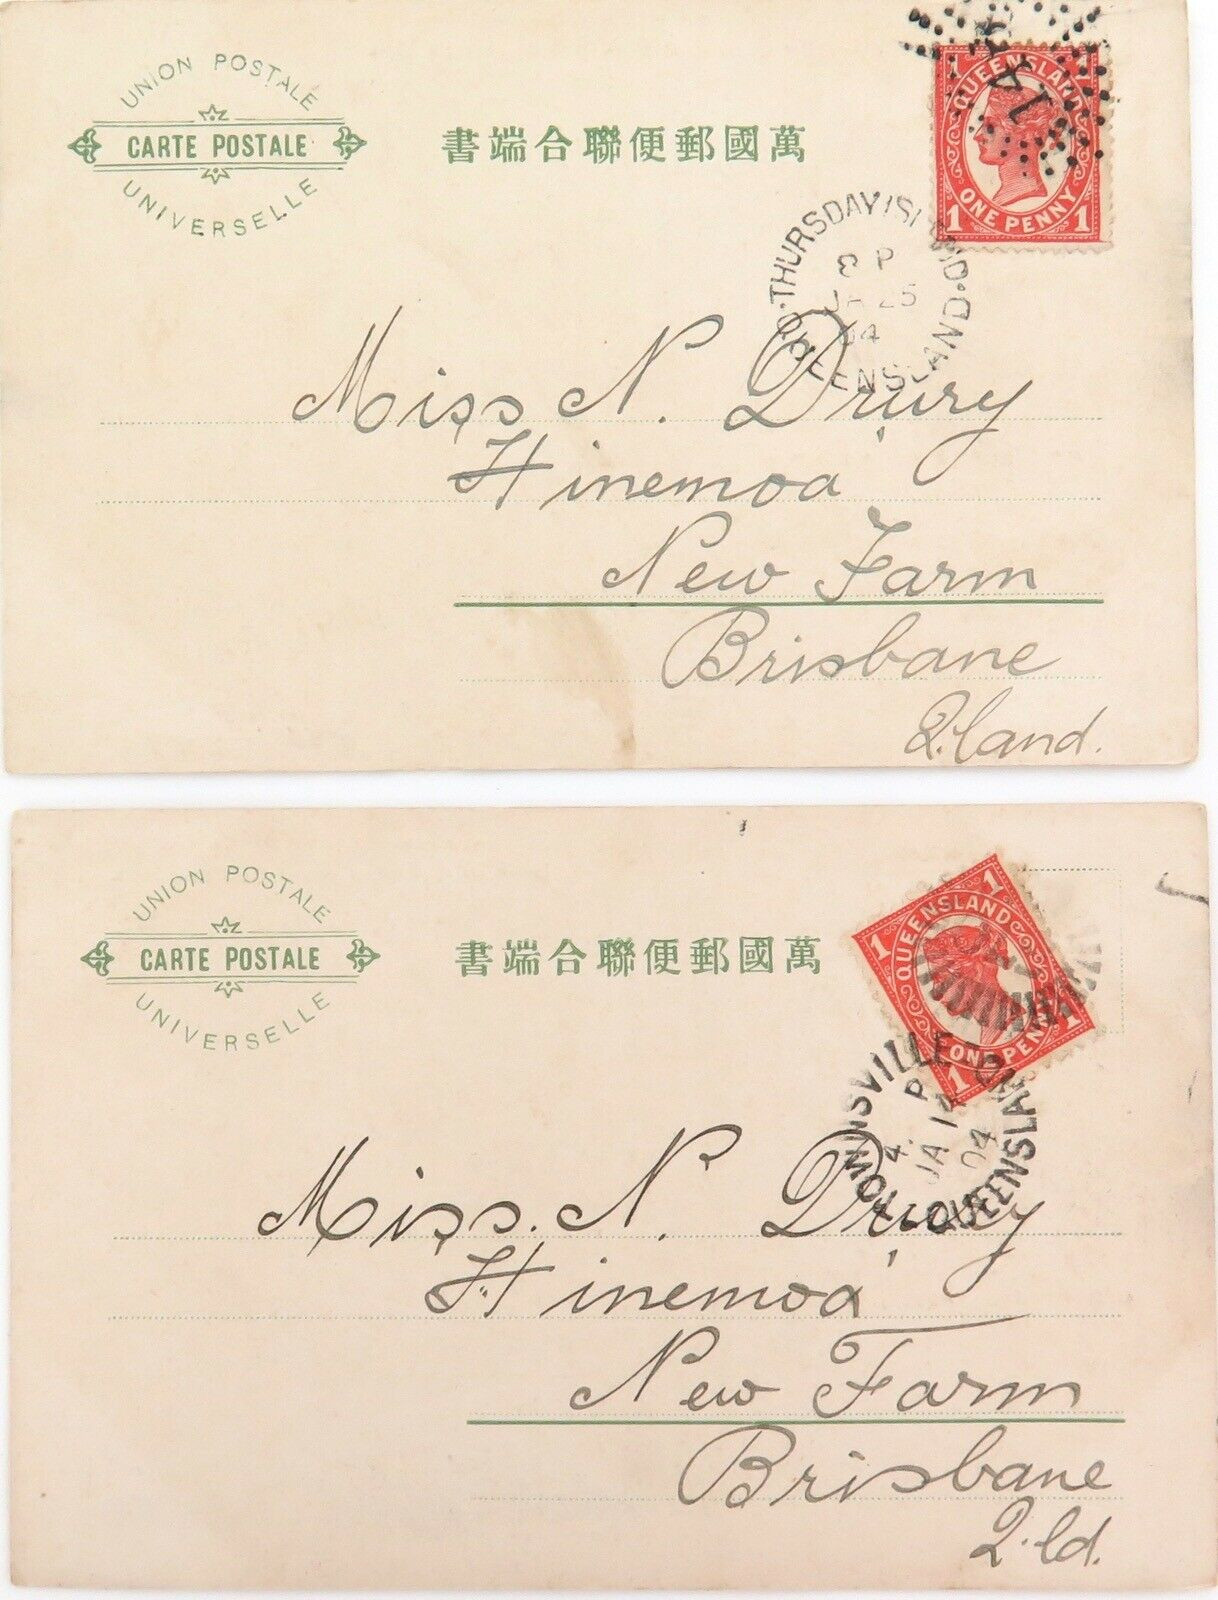 UNION POSTALE
CARTE POSTALE
UNIVERSELLE
書端合聯便郵國萬
1 QUEENSLAND 1
1 ONE PENNY 1
THURSDAY ISLAND
P
JA 25
04
QUEENSLAND
Miss N. Drury
Hinemoa
New Farm
Brisbane
Q.land.
UNION POSTALE
CARTE POSTALE
UNIVERSELLE
書端合聯便郵國萬
1 QUEENSLAND 1
1 ONE PENNY 1
TOWNSVILLE
4. P
JA 14
04
QUEENSLAND
Miss. N. Drury
Hinemoa
New Farm
Brisbane
Q.ld.